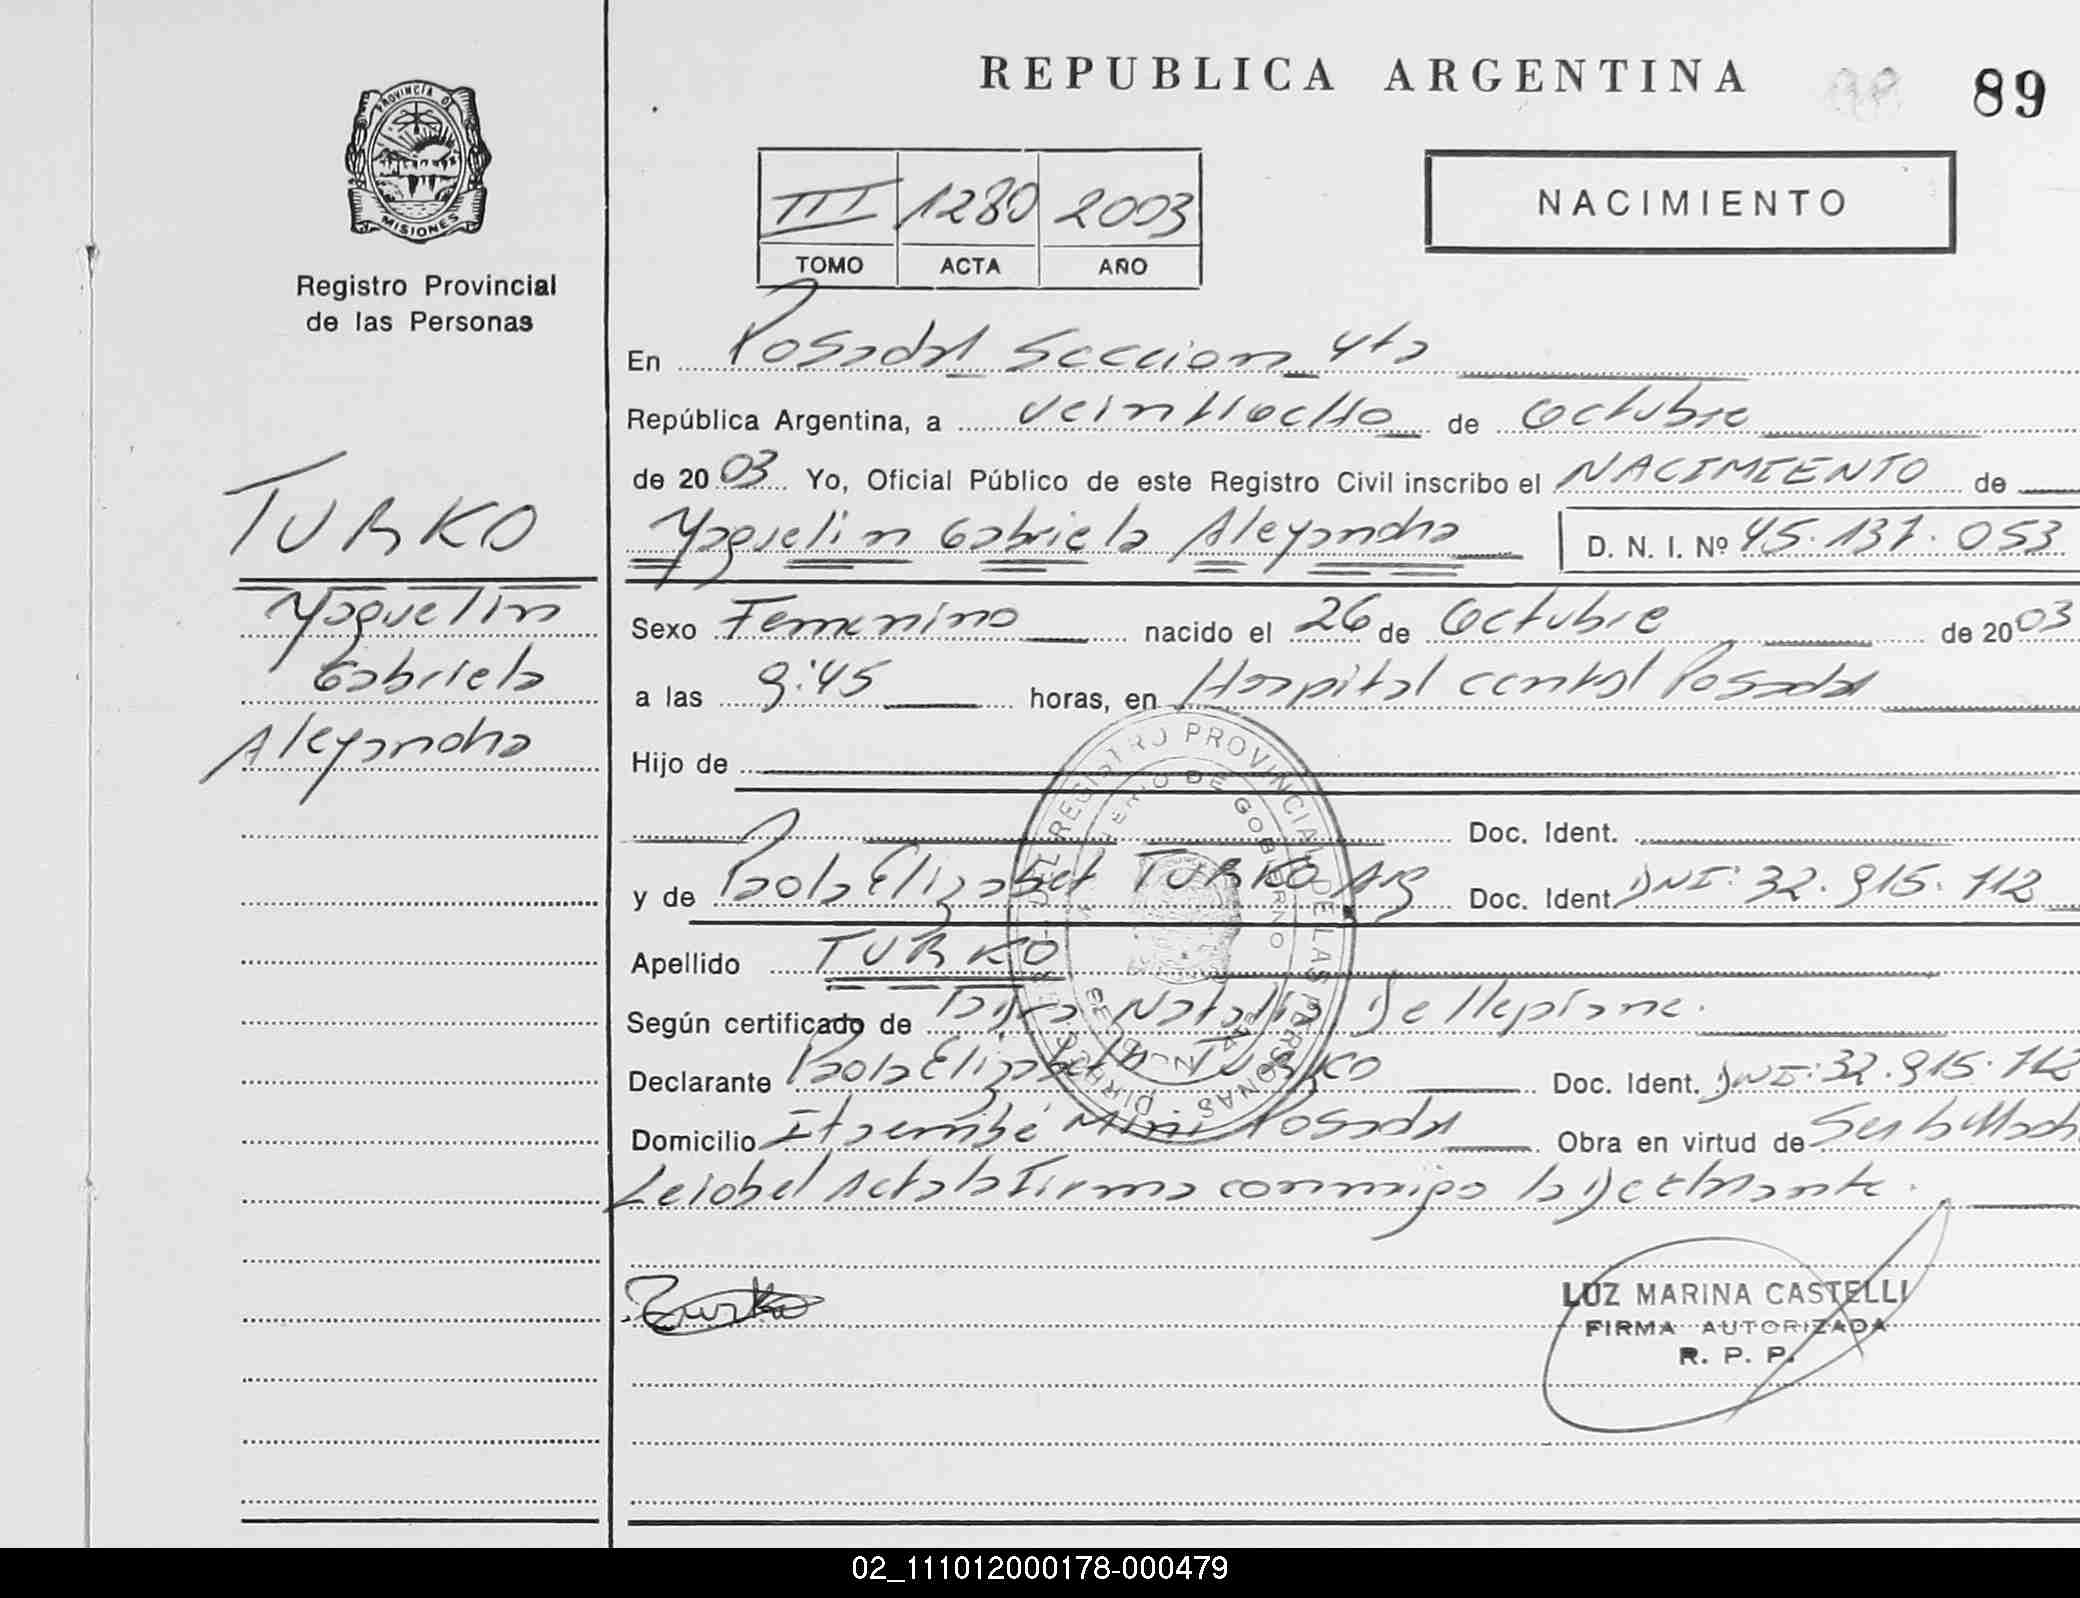 REPUBLICA ARGENTINA
89
PROVINCIA DE
MISIONES
Registro Provincial
de las Personas
III 1280 2003
TOMO ACTA AÑO
NACIMIENTO
En Posadas Seccion 4ta
República Argentina, a veintiocho de Octubre
de 2003 Yo, Oficial Público de este Registro Civil inscribo el NACIMIENTO de
Yaquelin Gabriela Aleyandra D. N. I. Nº 45.137.053
TURKO
Yaquelin
Gabriela
Aleyandra
Sexo Femenino nacido el 26 de Octubre de 2003
a las 9:45 horas, en Hospital central Posadas
Hijo de
Doc. Ident.
y de Paola Elizabet TURKO Arg Doc. Ident. DNI: 32.915.112
Apellido TURKO
Según certificado de Natalia Dellepiane.
Declarante Paola Elizabeth Turko Doc. Ident. DNI: 32.915.112
Domicilio Itaembé Mini Posadas Obra en virtud de Ser la Madre
Leida el Acta la Firma conmigo la Declarante.
Turko
LUZ MARINA CASTELLI
FIRMA AUTORIZADA
R. P. P.
REGISTRO PROVINCIAL DE LAS PERSONAS
DE GOBIERNO
02_111012000178-000479